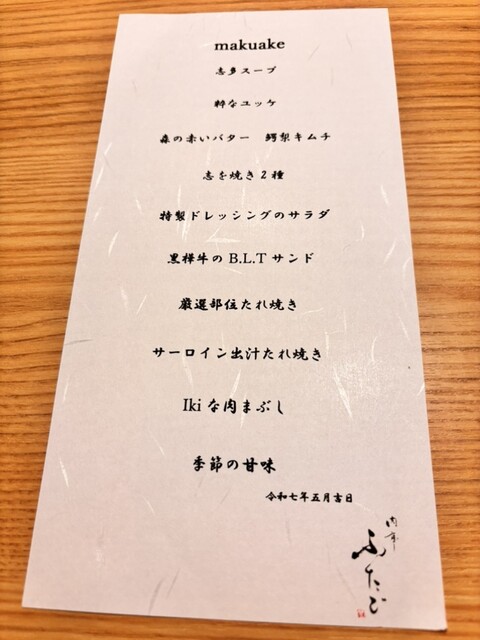 makuake
志多スープ
粋なユッケ
森の赤いバター 鰐梨キムチ
志を焼き2種
特製ドレッシングのサラダ
黒樺牛の B.L.T サンド
厳選部位たれ焼き
サーロイン出汁たれ焼き
Iki な肉まぶし
季節の甘味
令和七年五月吉日
ふたご